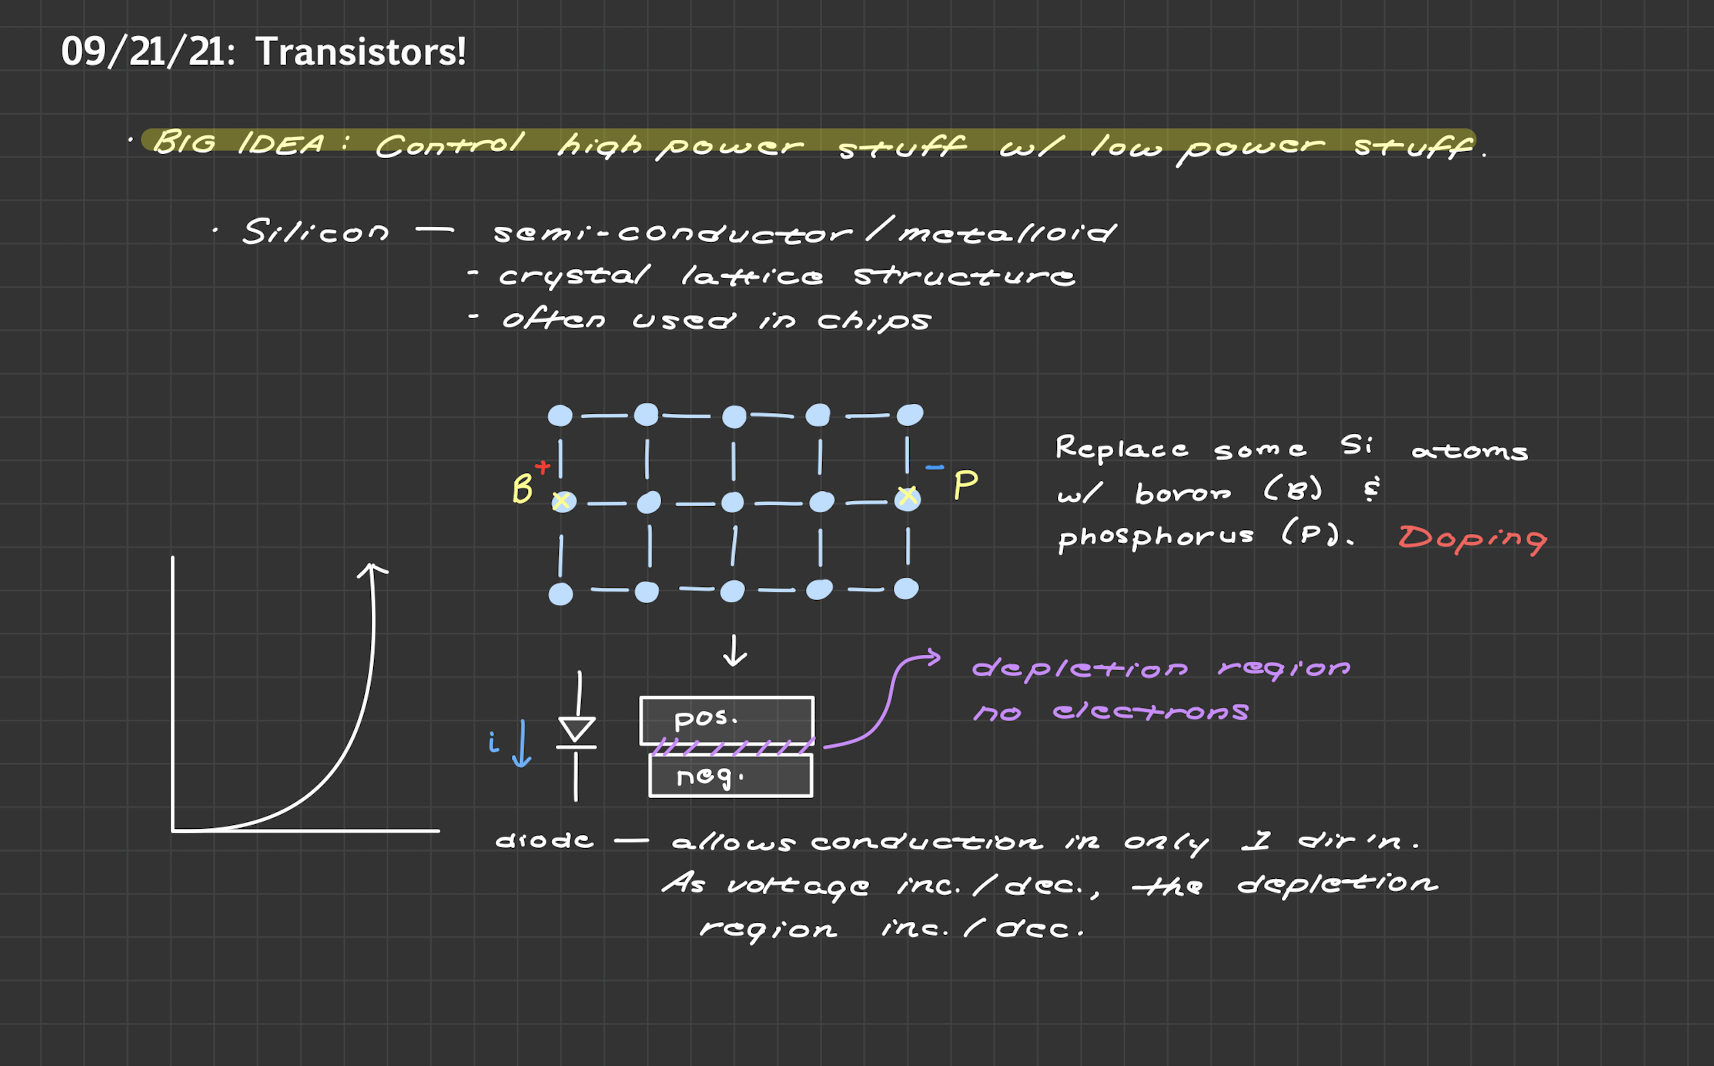 09/21/21: Transistors!
· BIG IDEA: Control high power stuff w/ low power stuff.
· Silicon — semi-conductor/metalloid
- crystal lattice structure
- often used in chips
B +
- P
Replace some Si atoms
w/ boron (B) &
phosphorus (P). Doping
depletion region
no electrons
i
pos.
neg.
diode — allows conduction in only 1 dir'n.
As voltage inc./dec., the depletion
region inc./dec.